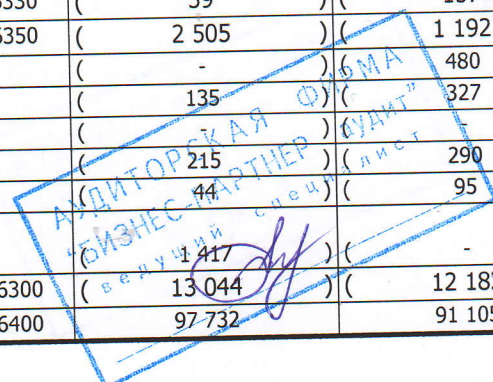 ( 59 ) (
6350 ( 2 505 ) ( 1 192
( - ) ( 480
( 135 ) ( 327
( - ) ( -
( 215 ) ( 290
( 44 ) ( 95
( 1 417 ) ( -
6300 ( 13 044 ) ( 12 18
6400 97 732 91 105
АУДИТОРСКАЯ ФИРМА
"БИЗНЕС-ПАРТНЕР АУДИТ"
ведущий специалист